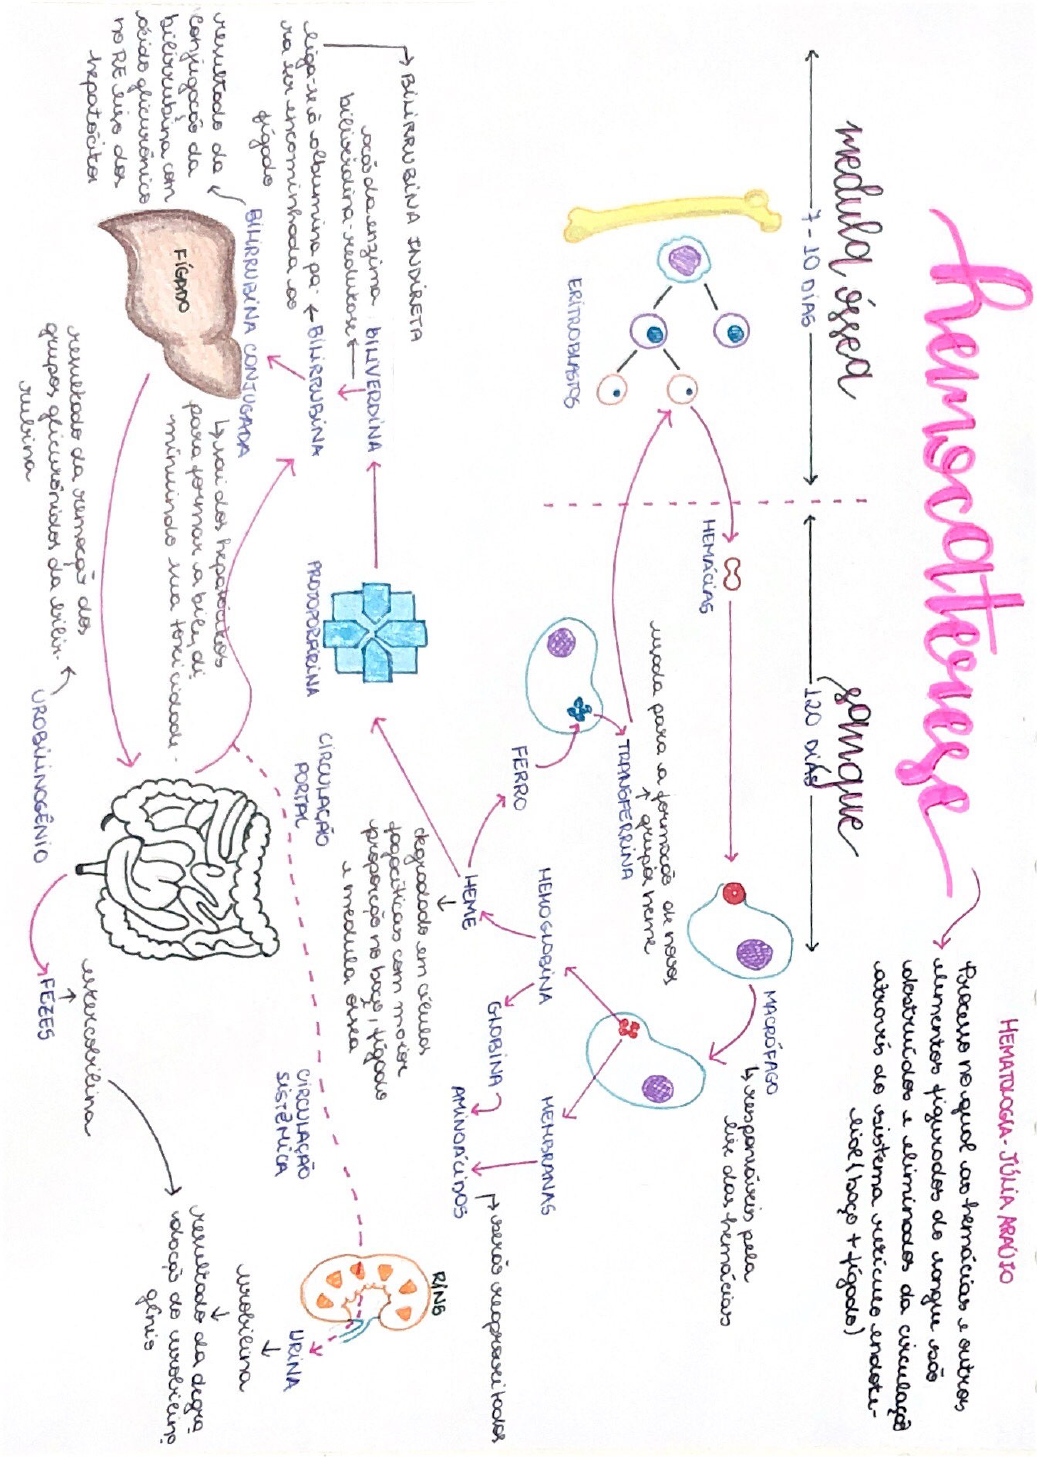 HEMATOLOGIA - JÚLIA ARAÚJO
hemocaterese
Processo no qual as hemácias e outros
elementos figurados do sangue são
destruídos e eliminados da circulação
através do sistema retículo endote-
lial (baço + fígado)
medula óssea
7 - 10 DIAS
sangue
120 DIAS
ERITROBLASTOS
HEMÁCIAS
MACRÓFAGO
responsáveis pela
lise das hemácias
usada para a formação de novos
grupos heme
TRANSFERRINA
FERRO
HEMOGLOBINA
MEMBRANAS
HEME
GLOBINA
AMINOÁCIDOS
serão reaproveitados
degradado em células
fagocíticas com maior
proporção no baço, fígado
e medula óssea
PROTOPORFIRINA
BILIVERDINA
ação da enzima
biliverdina-redutase
BILIRRUBINA INDIRETA
BILIRRUBINA
liga-se à albumina pa-
ra ser encaminhada ao
fígado
BILIRRUBINA CONJUGADA
resultado da
conjugação da
bilirrubina com
ácido glicurônico
no RE liso dos
hepatócitos
sai dos hepatócitos
para formar a bile, di-
minuindo sua toxicidade.
FÍGADO
CIRCULAÇÃO
PORTAL
CIRCULAÇÃO
SISTÊMICA
RINS
URINA
urobilina
resultado da degra-
dação do urobilino-
gênio
UROBILINOGÊNIO
resultado da remoção dos
grupos glicurônidos da bilir-
rubina
FEZES
estercobilina